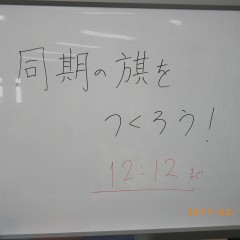 同期の旗を
つくろう!
12:12 まで